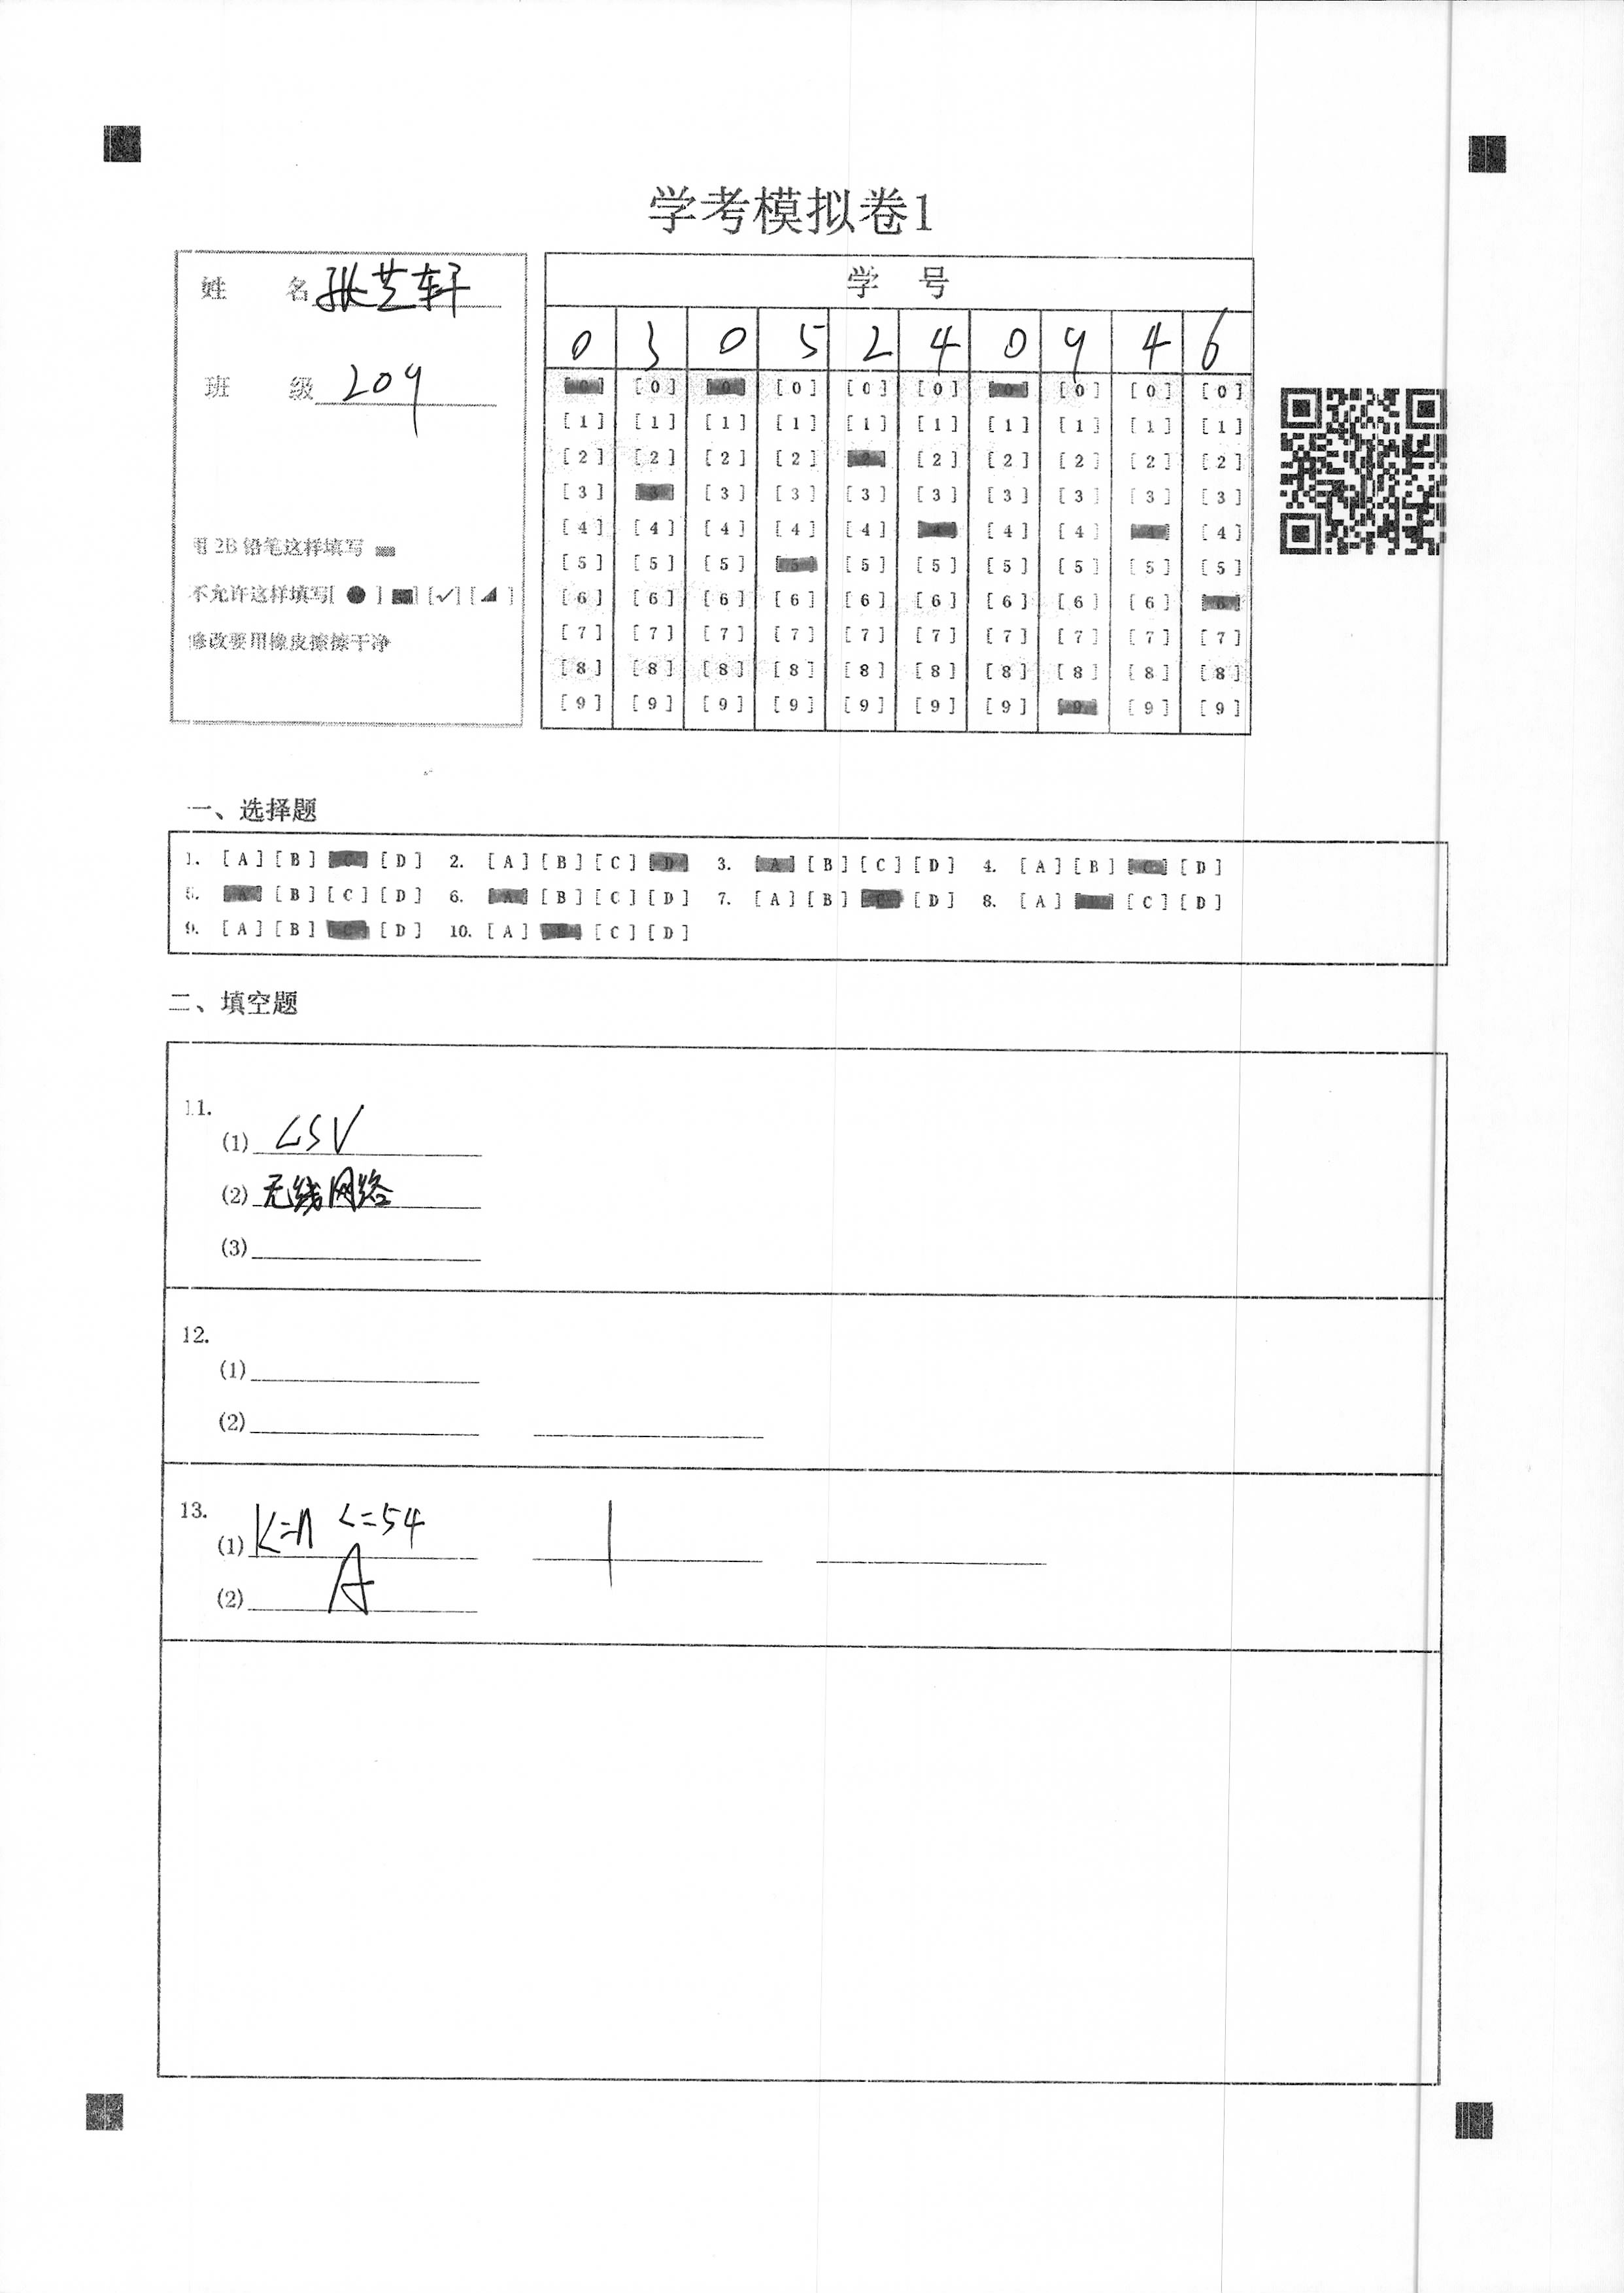 学考模拟卷1
姓 名 张芝轩
班 级 209
用 2B 铅笔这样填写
不允许这样填写[ ● ] [■] [✓] [◢ ]
修改要用橡皮擦擦干净
学 号
0 3 0 5 2 4 0 9 4 6
[0] [0] [0] [0] [0] [0] [0] [0] [0] [0]
[1] [1] [1] [1] [1] [1] [1] [1] [1] [1]
[2] [2] [2] [2] [2] [2] [2] [2] [2] [2]
[3] [3] [3] [3] [3] [3] [3] [3] [3] [3]
[4] [4] [4] [4] [4] [4] [4] [4] [4] [4]
[5] [5] [5] [5] [5] [5] [5] [5] [5] [5]
[6] [6] [6] [6] [6] [6] [6] [6] [6] [6]
[7] [7] [7] [7] [7] [7] [7] [7] [7] [7]
[8] [8] [8] [8] [8] [8] [8] [8] [8] [8]
[9] [9] [9] [9] [9] [9] [9] [9] [9] [9]
一、选择题
1. [A] [B] [C] [D] 2. [A] [B] [C] [D] 3. [A] [B] [C] [D] 4. [A] [B] [C] [D]
5. [A] [B] [C] [D] 6. [A] [B] [C] [D] 7. [A] [B] [C] [D] 8. [A] [B] [C] [D]
9. [A] [B] [C] [D] 10. [A] [B] [C] [D]
二、填空题
11.
(1) CSV
(2) 无线网络
(3)
12.
(1)
(2)
13.
(1) K=n <=54 1
(2) A